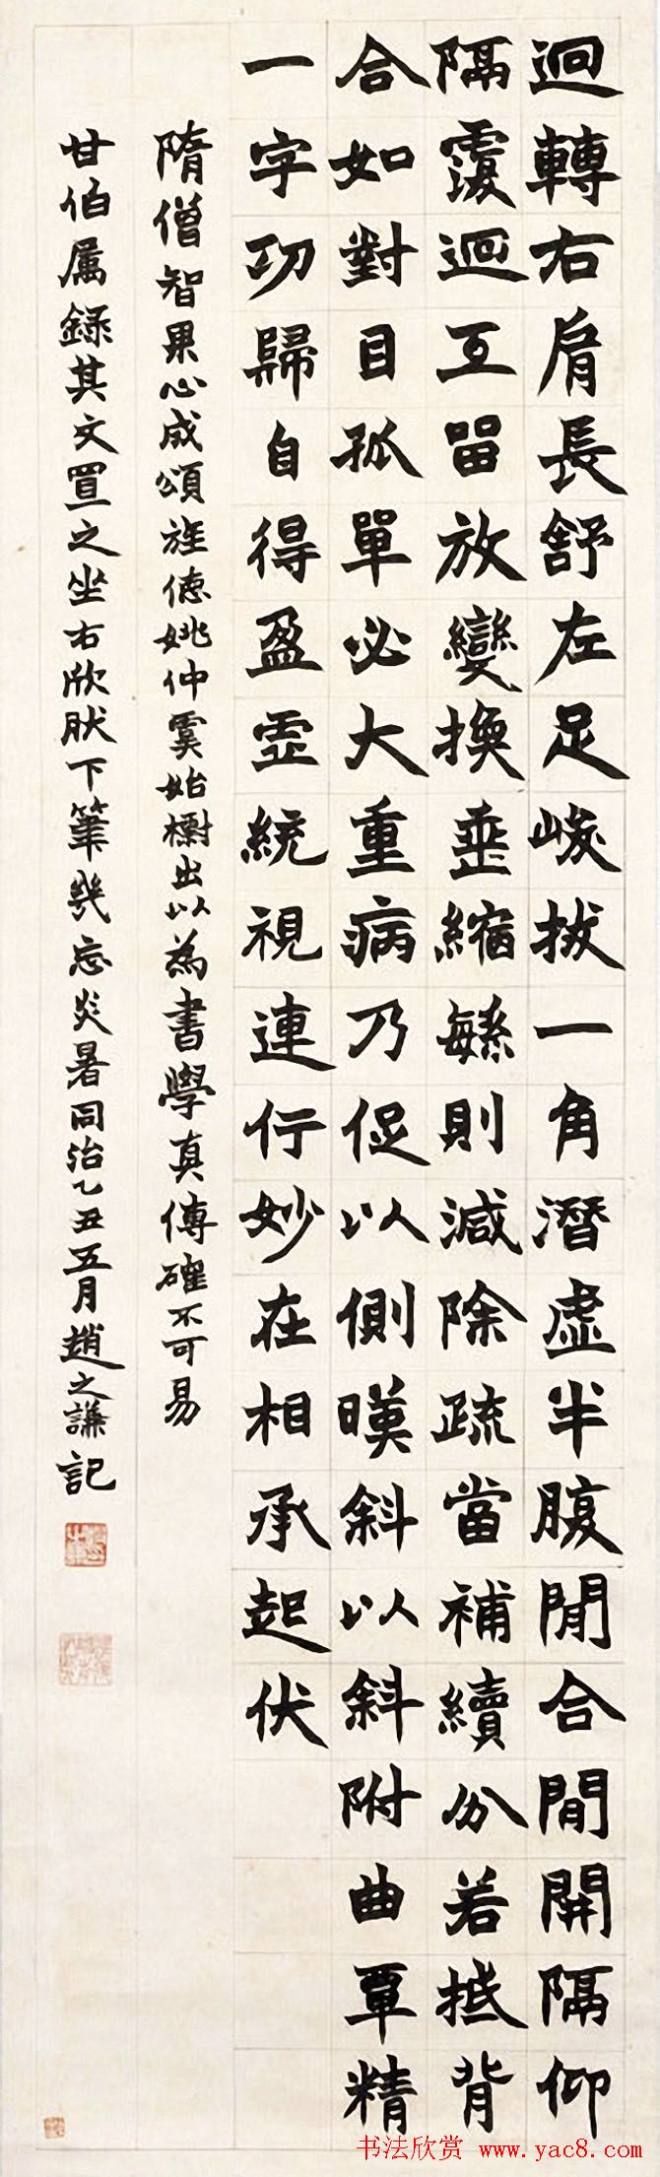 迴轉右肩長舒左足峻拔一角潛虛半腹閒合閒開隔仰
隔覆迴互留放變換垂縮繁則減除疏當補續分若抵背
合如對目孤單必大重病乃促以側暎斜以斜附曲覃精
一字功歸自得盈虛統視連行妙在相承起伏
隋僧智果心成頌旌德姚仲虞始出以為書學真傳確不可易
甘伯屬錄其文置之坐右欣肰下筆幾忘炎暑同治乙丑五月趙之謙記
书法欣赏 www.yac8.com